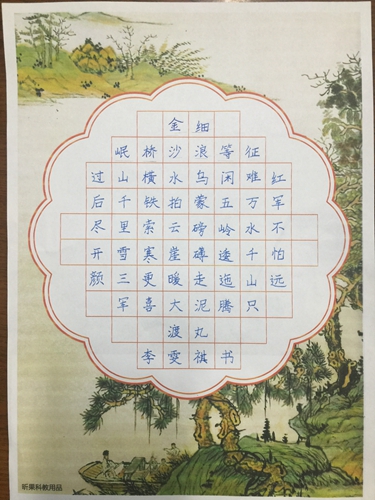 红军不怕远
征难万水千山只
等闲五岭逶迤腾
细浪乌蒙磅礴走泥丸
金沙水拍云崖暖大渡
桥横铁索寒更喜
岷山千里雪三军
过后尽开颜
李雯祺书
昕果科教用品